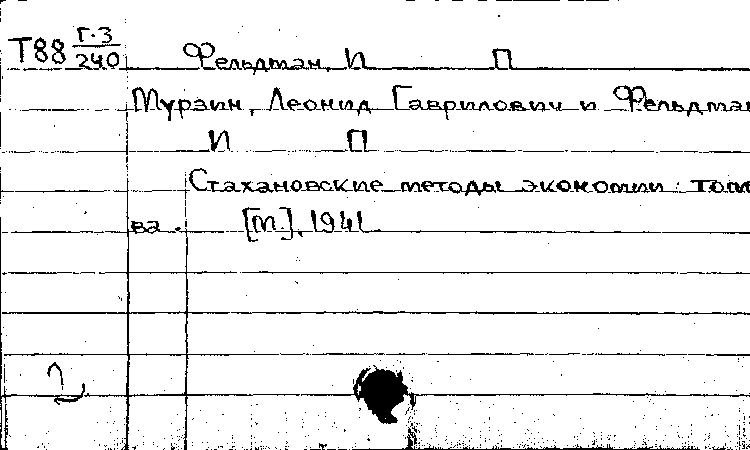 Т88 Г-3/240 Фельдман, И П
Мурзин, Леонид Гаврилович и Фельдман
И П
Стахановские методы экономии топли
ва. [М], 1941
2